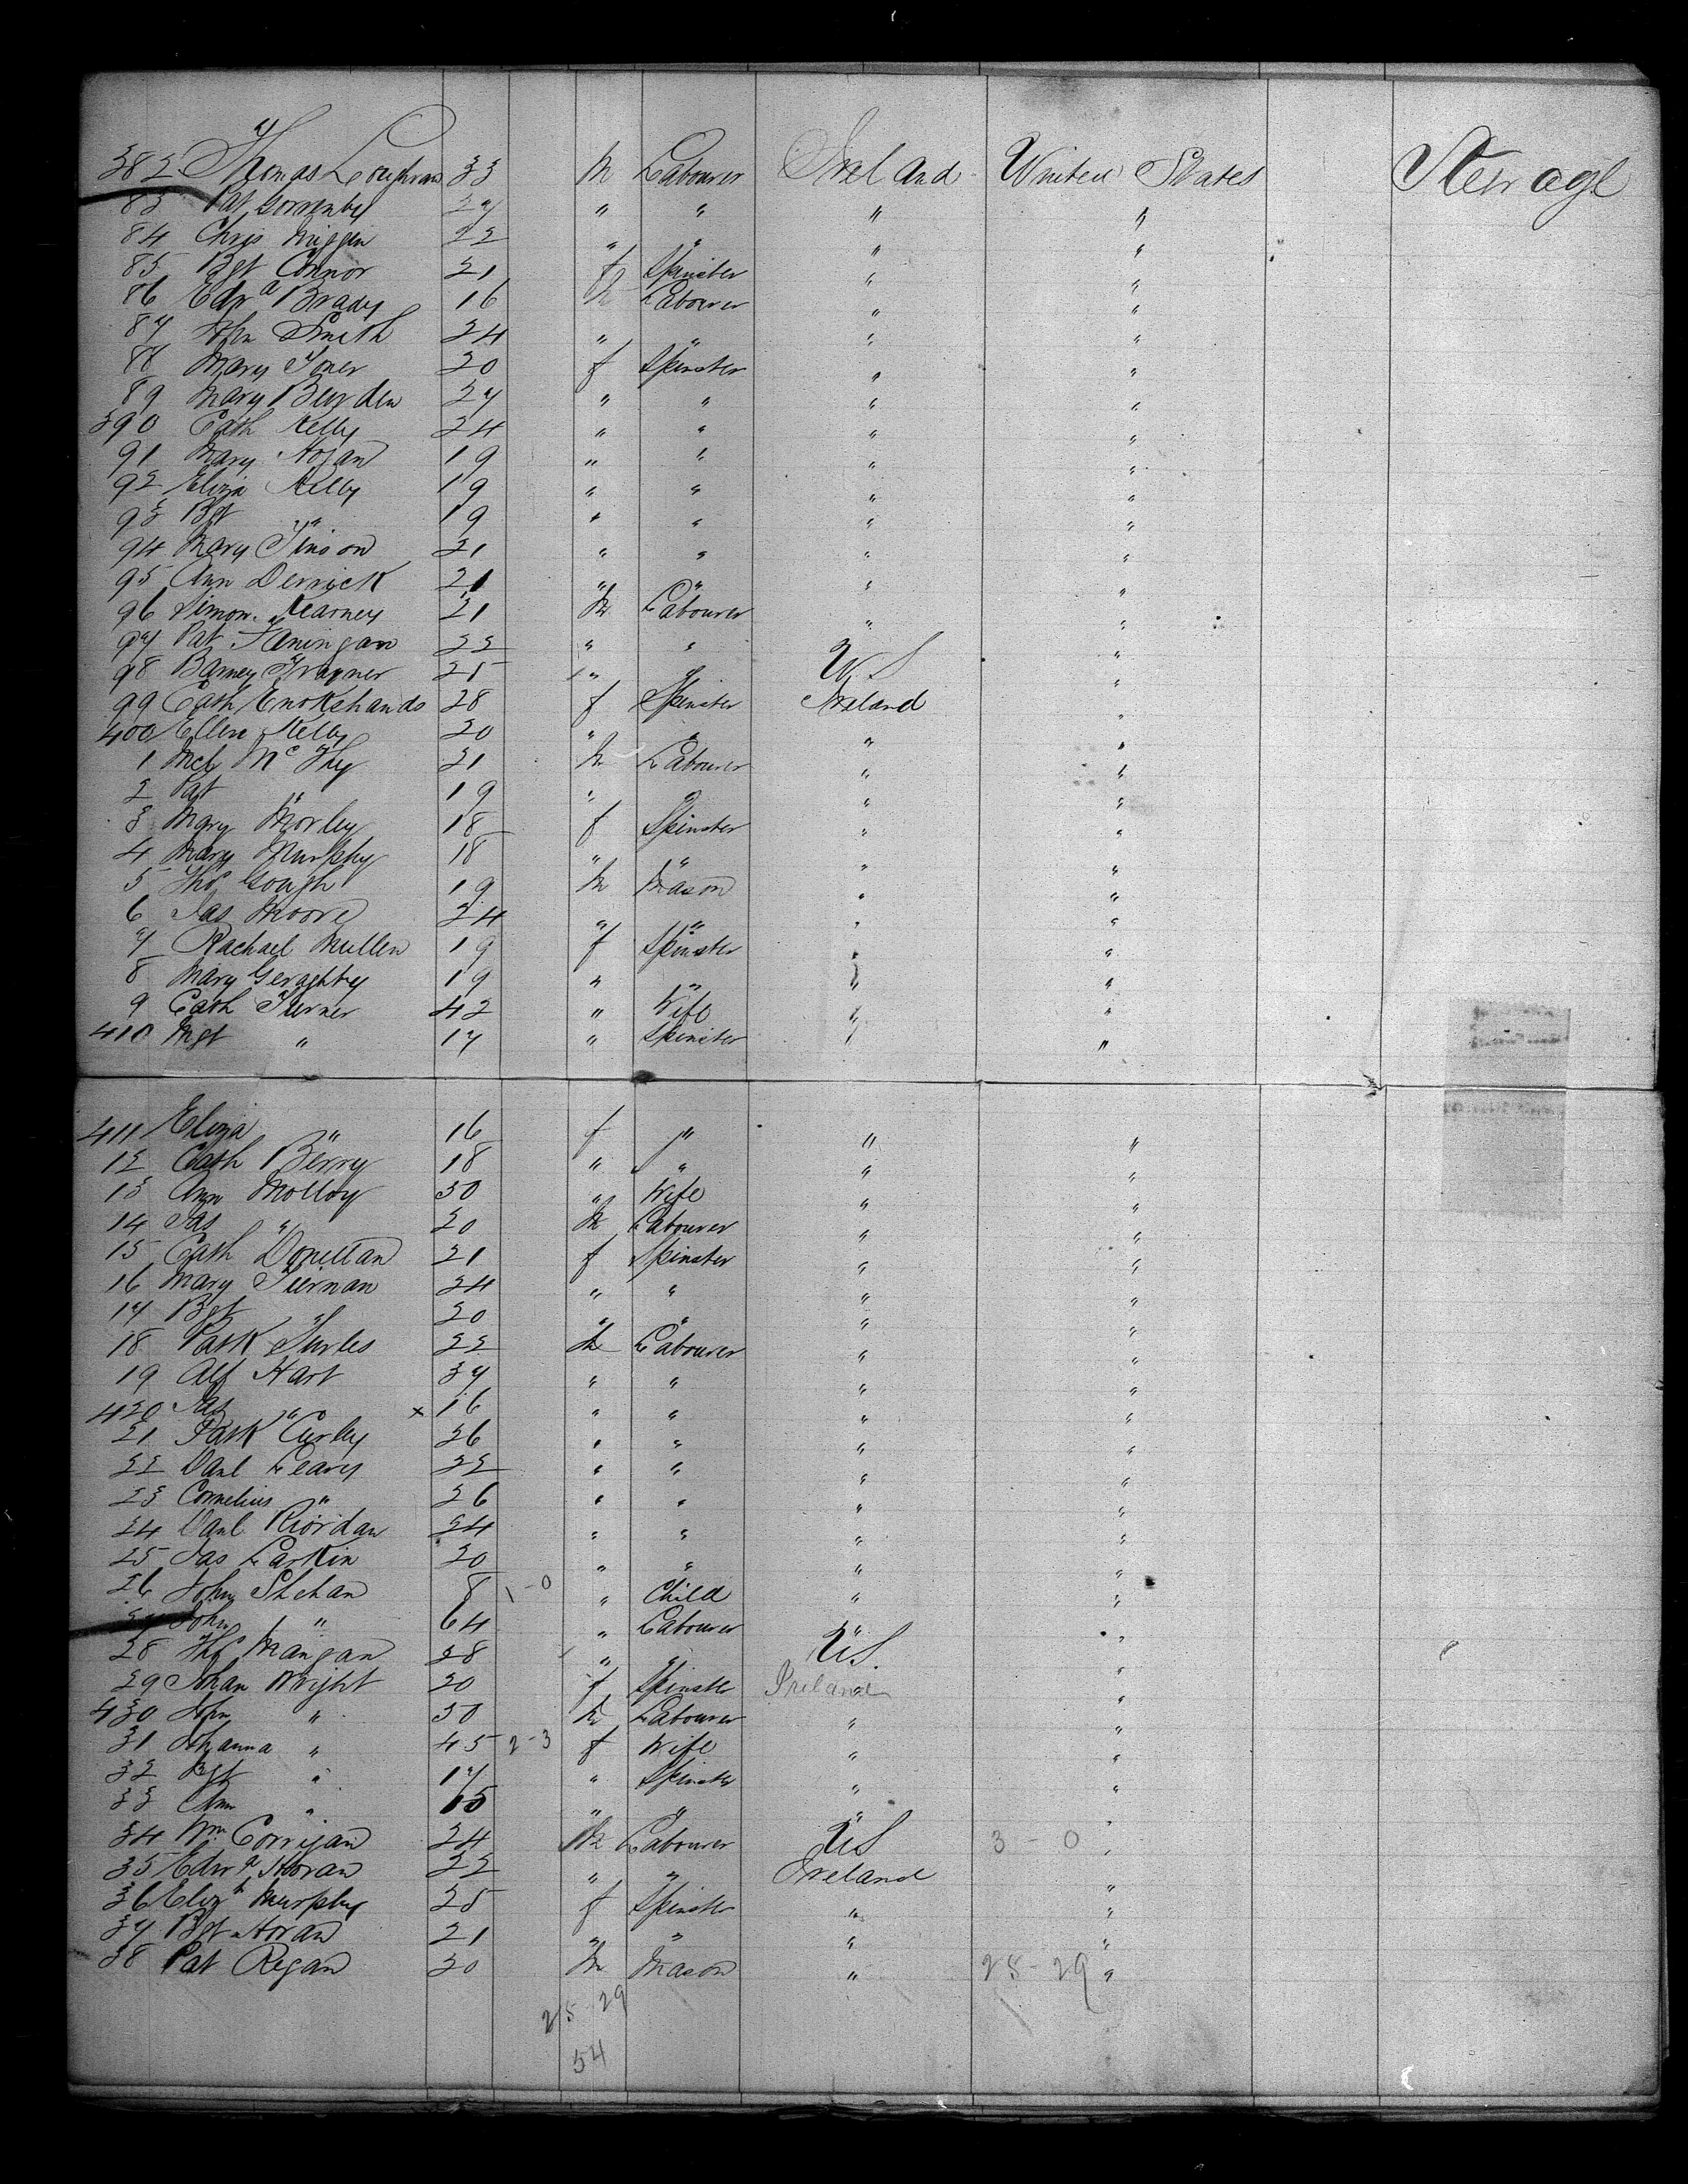 382 Thomas Loughran 33 M Labourer Ireland United States Steerage
83 Pat Gormby 27 " " " "
84 Chris Miggin 22 " " " "
85 Bgt Connor 21 f Spinster " "
86 Edwd Brady 16 M Labourer " "
87 John Smith 24 " " " "
88 Mary Toner 20 f Spinster " "
89 Mary 27 " " " "
390 Cath Kelly 24 " " " "
91 Mary Hogan 19 " " " "
92 Eliza Kelly 19 " " " "
93 Bgt " 19 " " " "
94 Mary 21 " " " "
95 Ann Derrick 21 " " " "
96 Simon Kearney 21 M Labourer " "
97 Pat 22 " " " "
98 Barney 25 " " U S "
99 Cath 28 f Spinster Ireland "
400 Ellen Kelly 20 " " " "
1 Mcl 21 M Labourer " "
2 Pat " 19 " " " "
3 Mary Morley 18 f Spinster " "
4 Mary Murphy 18 " " " "
5 Thos Gough 19 M Mason " "
6 Jas Moore 24 " " " "
7 Rachael Mullen 19 f Spinster " "
8 Mary Geraghty 19 " " " "
9 Cath Turner 42 " Wife " "
410 Mgt " 17 " Spinster " "
411 Eliza " 16 f " " "
12 Cath Berry 18 " " " "
13 Ann Molloy 30 " Wife " "
14 Jas " 20 M Labourer " "
15 Cath Donellan 21 f Spinster " "
16 Mary Tiernan 24 " " " "
17 Bgt " 20 " " " "
18 Patk 22 M Labourer " "
19 Alf Hart 37 " " " "
420 Jas " x 16 " " " "
21 Patk Curley 26 " " " "
22 Danl Leary 22 " " " "
23 Cornelius " 26 " " " "
24 Danl Riordan 24 " " " "
25 Jas Larkin 20 " " " "
26 John Shehan 8 1-0 " Child " "
27 John " 64 " Labourer " "
28 Thos Mangan 28 " " U.S. "
29 Johan Wright 20 f Spinster Ireland "
430 John " 50 M Labourer " "
31 Johanna " 45 2-3 f Wife " "
32 Bgt " 17 " Spinster " "
33 Ann " 15 " " " "
34 Wm Corrigan 24 M Labourer US 3 - 0 "
35 Edwd Horan 22 " " Ireland "
36 Elizth Murphy 25 f Spinster " "
37 Bgt Horan 21 " " " "
38 Pat Regan 20 M Mason " 25 - 29 "
25 29
54